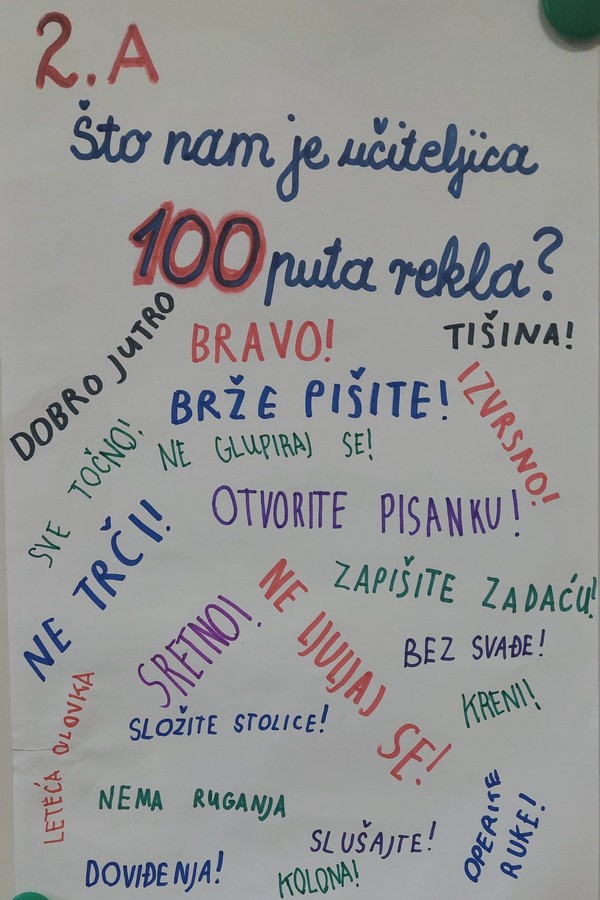 2.A
Što nam je učiteljica
100 puta rekla?
DOBRO JUTRO
BRAVO!
TIŠINA!
BRŽE PIŠITE!
IZVRSNO!
SVE TOČNO!
NE GLUPIRAJ SE!
OTVORITE PISANKU!
NE TRČI!
ZAPIŠITE ZADAĆU!
SRETNO!
NE LJULJAJ SE!
BEZ SVAĐE!
LETEĆA OLOVKA
SLOŽITE STOLICE!
KRENI!
NEMA RUGANJA
SLUŠAJTE!
OPERITE
RUKE!
DOVIĐENJA!
KOLONA!